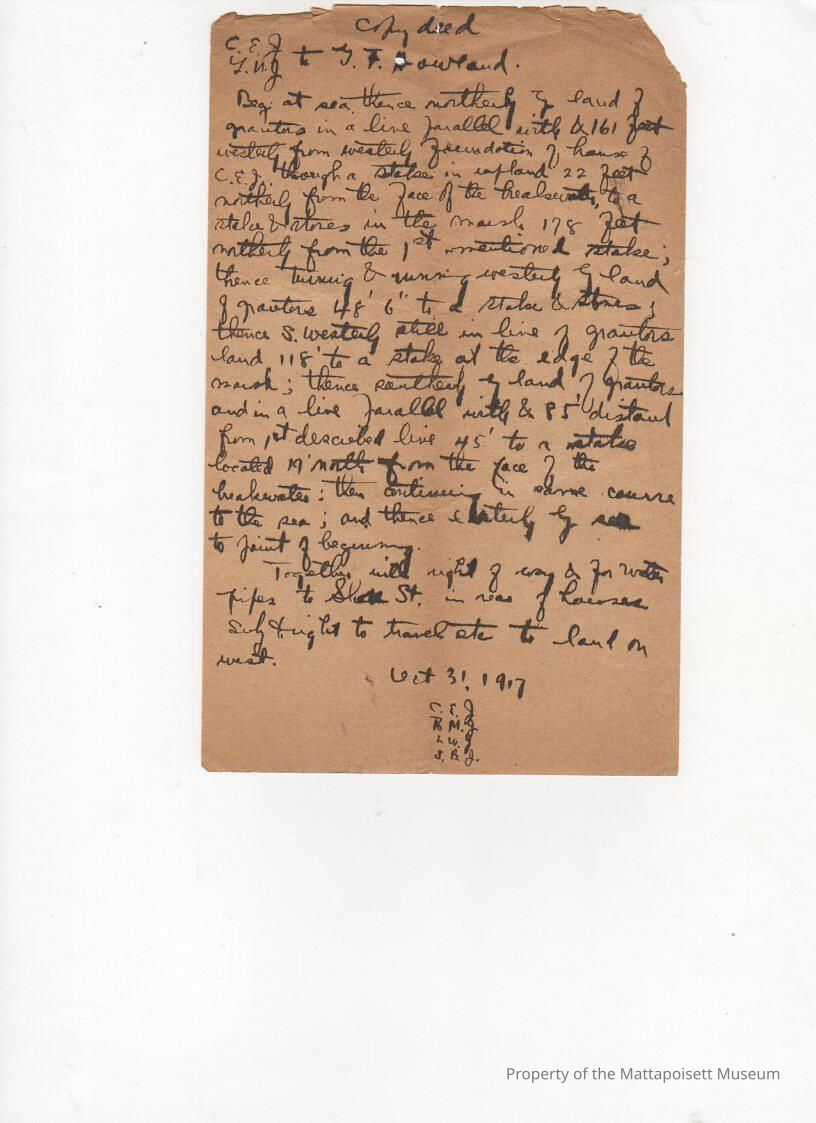 Copy deed
C. E. J.
L. W. J. to G. F. Howland.
Beg. at sea thence northerly by land of
grantors in a line parallel with & 161 feet
westerly from westerly foundation of house of
C.E.J. through a stake in upland 22 feet
northerly from the face of the breakwater, to a
stake & stones in the marsh 178 feet
northerly from the 1st mentioned stake;
thence turning & running westerly by land
of grantors 48' 6" to a stake & stones;
thence S. westerly still in line of grantors
land 118' to a stake at the edge of the
marsh; thence southerly by land of grantors
and in a line parallel with & 85' distant
from 1st described line 45' to a stake
located 19' north from the face of the
breakwater: then continuing in same course
to the sea; and thence easterly by sea
to point of beginning.
Together with right of way & for water
pipes to St. in rear of houses
Subj to right to travel etc to land on
west.
Oct 31, 1917
C. E. J.
R. M. J.
L. W. J.
S. B. J.
Property of the Mattapoisett Museum